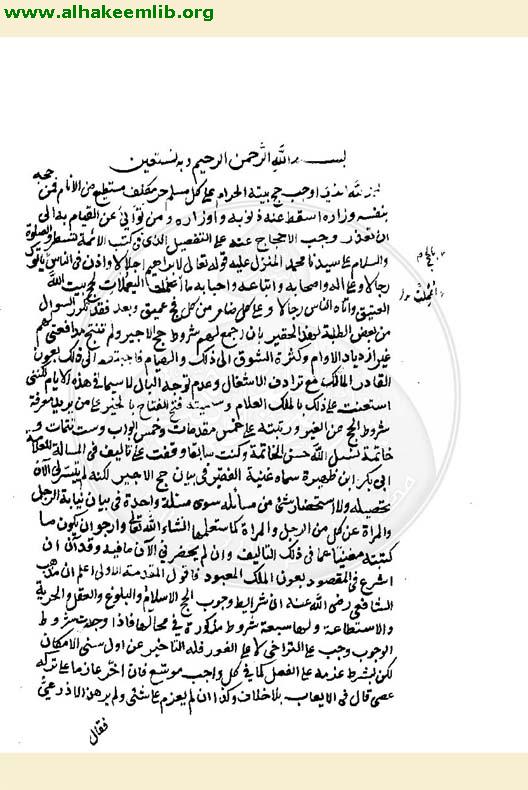 www.alhakeemlib.org
بسم الله الرحمن الرحيم وبه نستعين
لله الذي اوجب حج بيته الحرام على كل مسلم حر مكلف مستطيع من الأنام فمن حجه
بنفسه وزاره اسقط عنه ذنوبه واوزاره ومن توانى عن القيام به الى
ان تعذر وجب الاحجاج عنه على التفصيل الذى فى كتب الائمة تسطر والصلوة
والسلام على سيدنا محمد المنزل عليه قوله تعالى لابراهيم اجلالا واذن فى الناس بالحج ياتوك
رجالا وعلى اله واصحابه واتباعه واحبابه ما اعملت اليعملات لحج بيت الله
العتيق واتاه الناس رجالا وعلى كل ضامر من كل فج عميق وبعد فقد تكرر السوال
من بعض الطلبة لهذا الحقير بان اجمع لهم شروط حج الاجير ولم تنتج مدافعتى لهم
غير ازدياد الاوام وكثرة الشوق الى ذلك والهيام فاجبتهم الى ذلك بعون
القادر المالك مع ترادف الاشتغال وعدم توجه البال لا سيما فى هذه الايام لكننى
استعنت على ذلك بالملك العلام وسميته فتح الفتاح بالخير على من يريد معرفة
شروط الحج عن الغير ورتبته على خمس مقدمات وخمس ابواب وست تتمات و
خاتمة نسئل الله حسن الخاتمة وكنت سابقا وقفت على تاليف فى المسالة للعلامة
ابى بكر ابن ظهيرة سماه غنية الفقير فى بيان حج الاجير لكنه لم يتيسر لى الآن
تحصيله ولا استحضار شئ من مسائله سوى مسئلة واحدة فى بيان نيابة الرجل
والمراة عن كل من الرجل والمراة كما ستعلمها انشاء الله تعالى وارجو ان يكون ما
كتبته مغنيا عما فى ذلك التاليف وان لم يحضر فى الآن ما فيه وقد آن ان
اشرع فى المقصود بعون الملك المعبود فاقول المقدمة الاولى اعلم ان مذهب
الشافعى رضى الله عنه ان شرايط وجوب الحج الاسلام والبلوغ والعقل والحرية
والاستطاعة ولها سبعة شروط مذكورة فى محالها فاذا وجدت شروط
الوجوب وجب على التراخى لا على الفور فله التاخير عن اول سنى الامكان
لكن بشرط عزمه على الفعل كما فى كل واجب موسع فان اخر عازما على تركه
عصى قال فى الايعاب بلا خلاف وكذا ان لم يعزم على شئى ولم يرهذا الاذرعى
فقال